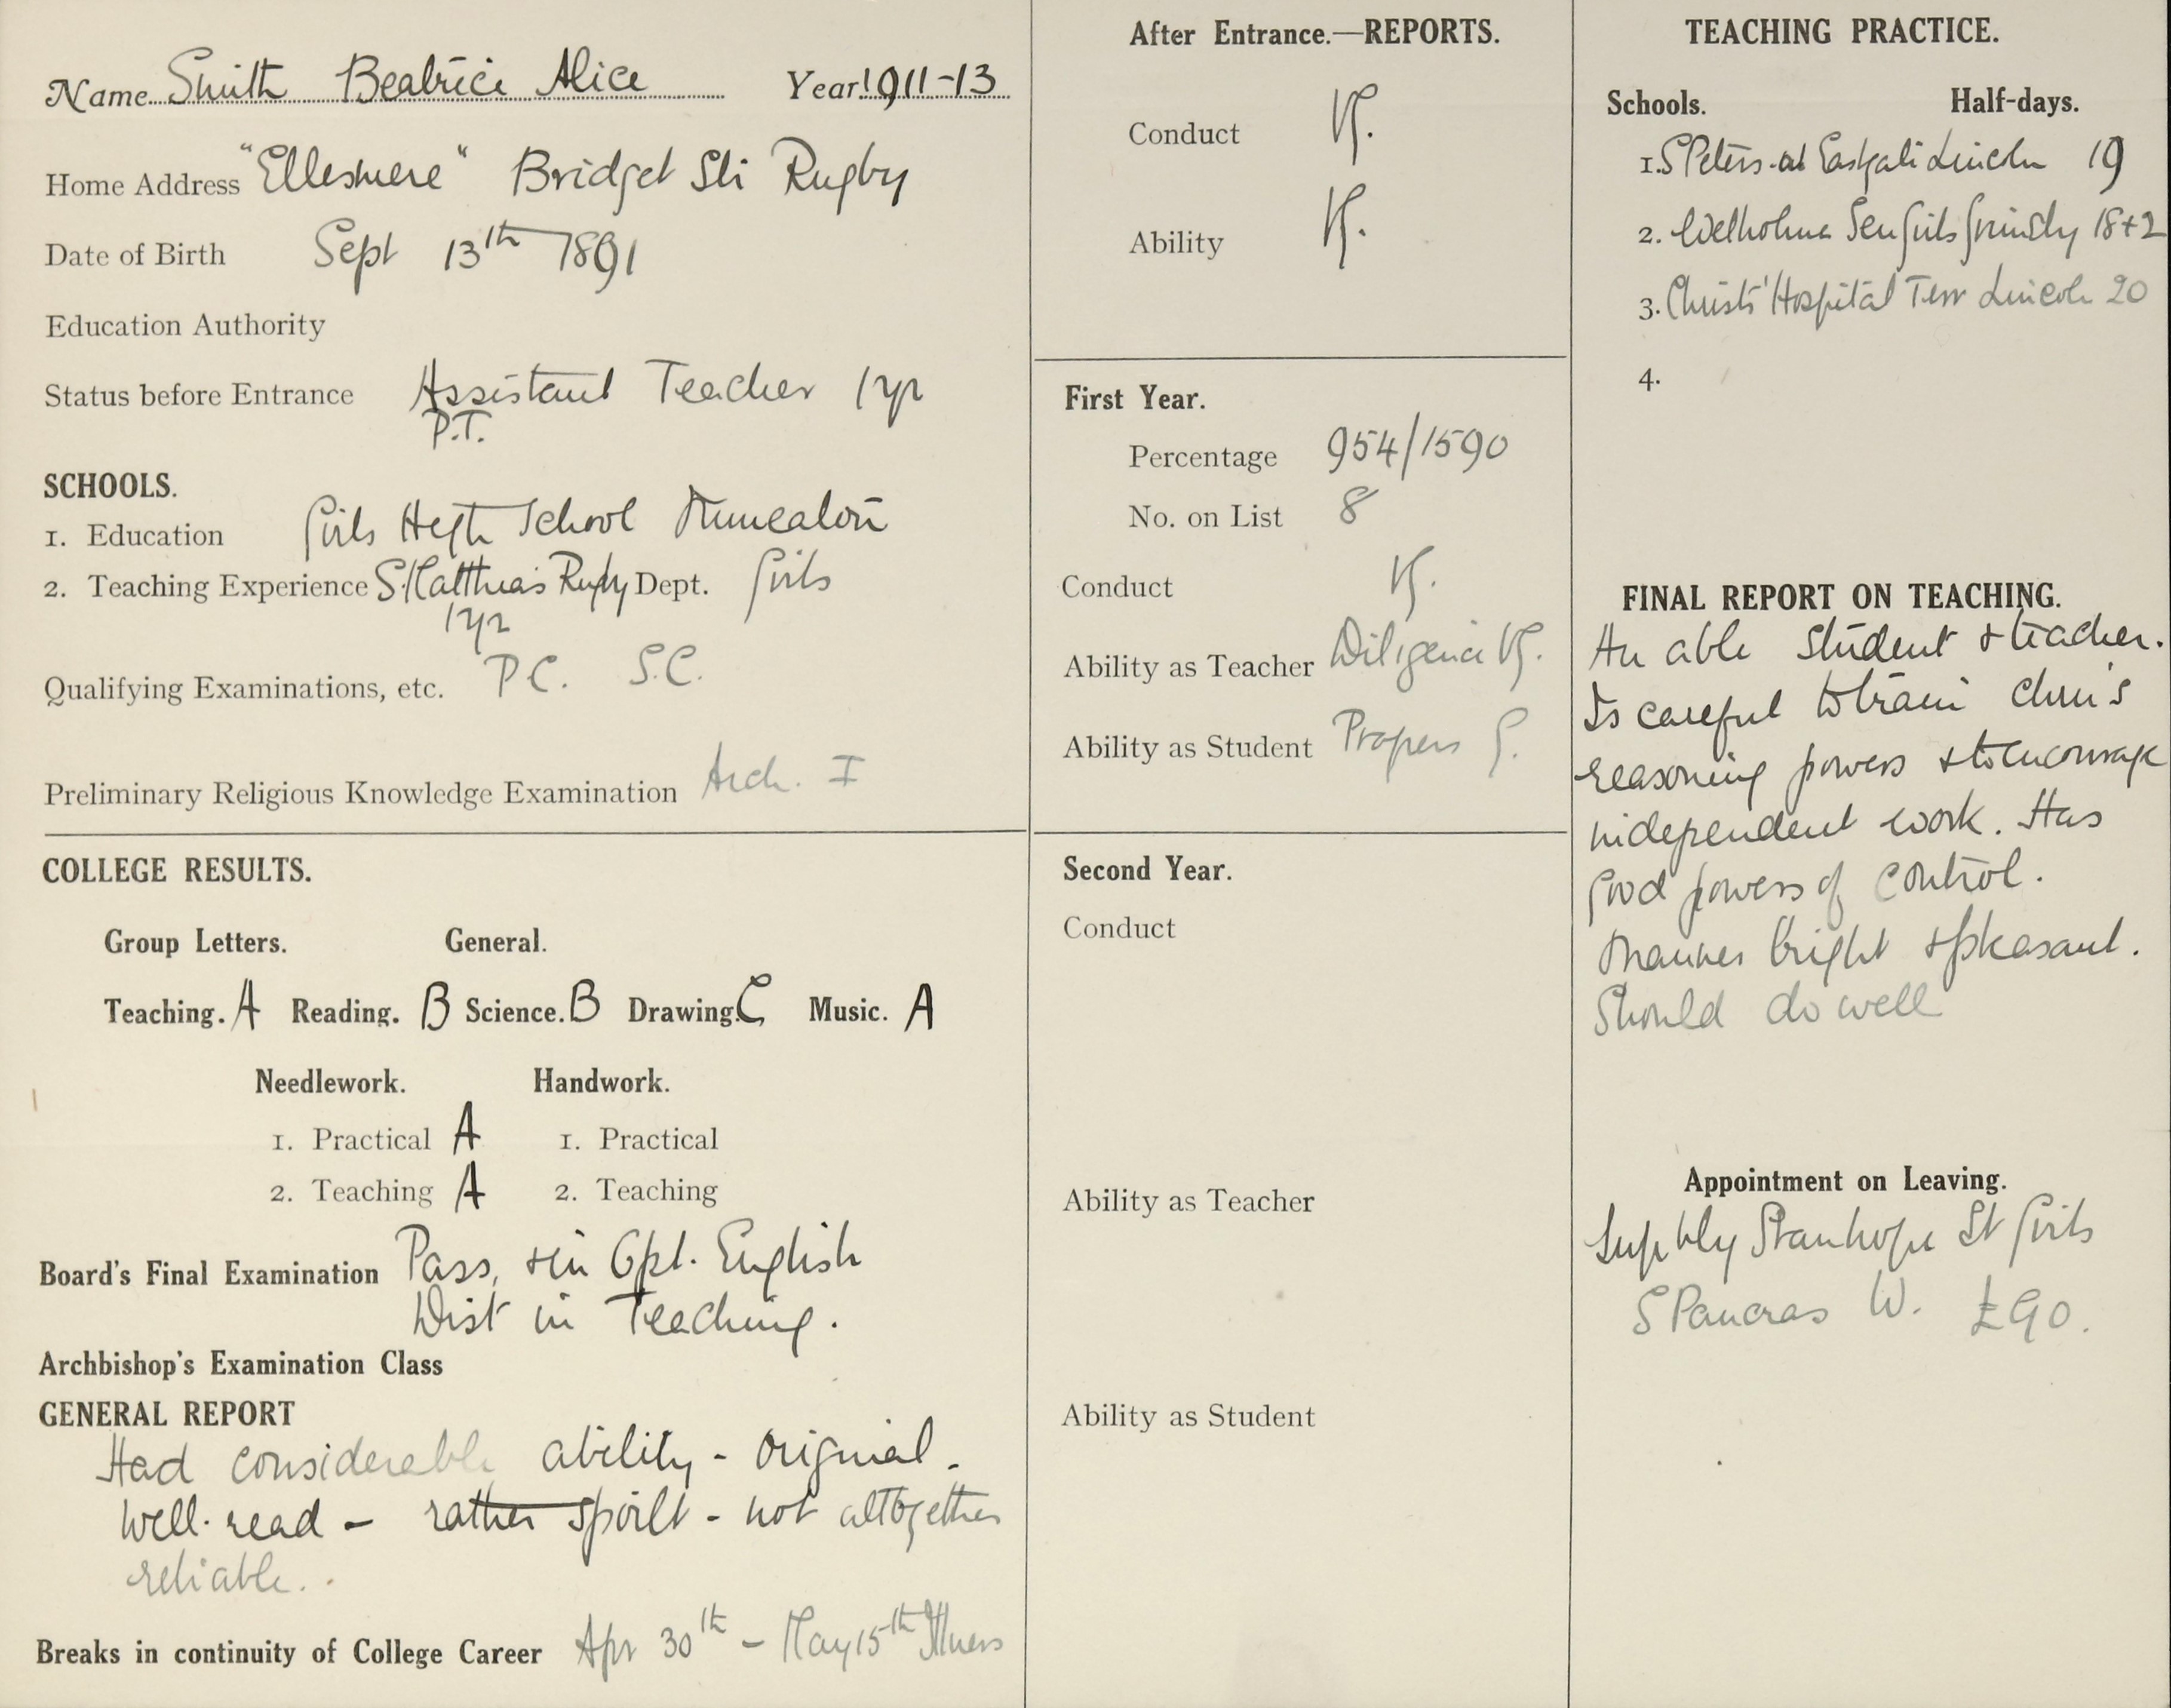 Name Smith Beatrice Alice Year 1911-13
Home Address "Ellesmere" Bridget St Rugby
Date of Birth Sept 13th 1891
Education Authority
Status before Entrance Assistant Teacher 1 yr
P.T.
SCHOOLS.
1. Education Girls High School Nuneaton
2. Teaching Experience S. Matthew's Rugby Dept. Girls
1 yr
Qualifying Examinations, etc. P.C. S.C.
Preliminary Religious Knowledge Examination Arch. I
COLLEGE RESULTS.
Group Letters. General.
Teaching. A Reading. B Science. B Drawing. C Music. A
Needlework. Handwork.
1. Practical A 1. Practical
2. Teaching A 2. Teaching
Board's Final Examination Pass, & in Opt. English
Dist in Teaching.
Archbishop's Examination Class
GENERAL REPORT
Had considerable ability - original -
well-read - rather spoilt - not altogether
reliable.
Breaks in continuity of College Career Apr 30th - May 15th Illness
After Entrance.—REPORTS.
Conduct VG.
Ability VG.
First Year.
Percentage 954/1590
No. on List 8
Conduct VG.
Ability as Teacher Diligence VG.
Ability as Student Progress G.
Second Year.
Conduct
Ability as Teacher
Ability as Student
TEACHING PRACTICE.
Schools. Half-days.
1. S Peters-at Eastgate Lincoln 19
2. Welholme Sen Girls Grimsby 18+2
3. Christs' Hospital Terr Lincoln 20
4.
FINAL REPORT ON TEACHING.
An able student & teacher.
Is careful to train chn's
reasoning powers & to encourage
independent work. Has
good powers of control.
Manner bright & pleasant.
Should do well
Appointment on Leaving.
Supply Stanhope St Girls
S Pancras W. £90.